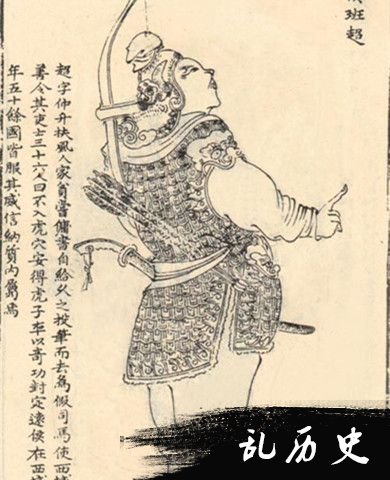 班超
超字仲升扶風人家貧嘗傭書自給久之投筆而去為假司馬使西域
善令其吏士三十六人曰不入虎穴安得虎子卒以奇功封定遠侯在西域
年五十餘國皆服其威信納質內屬焉
乱历史